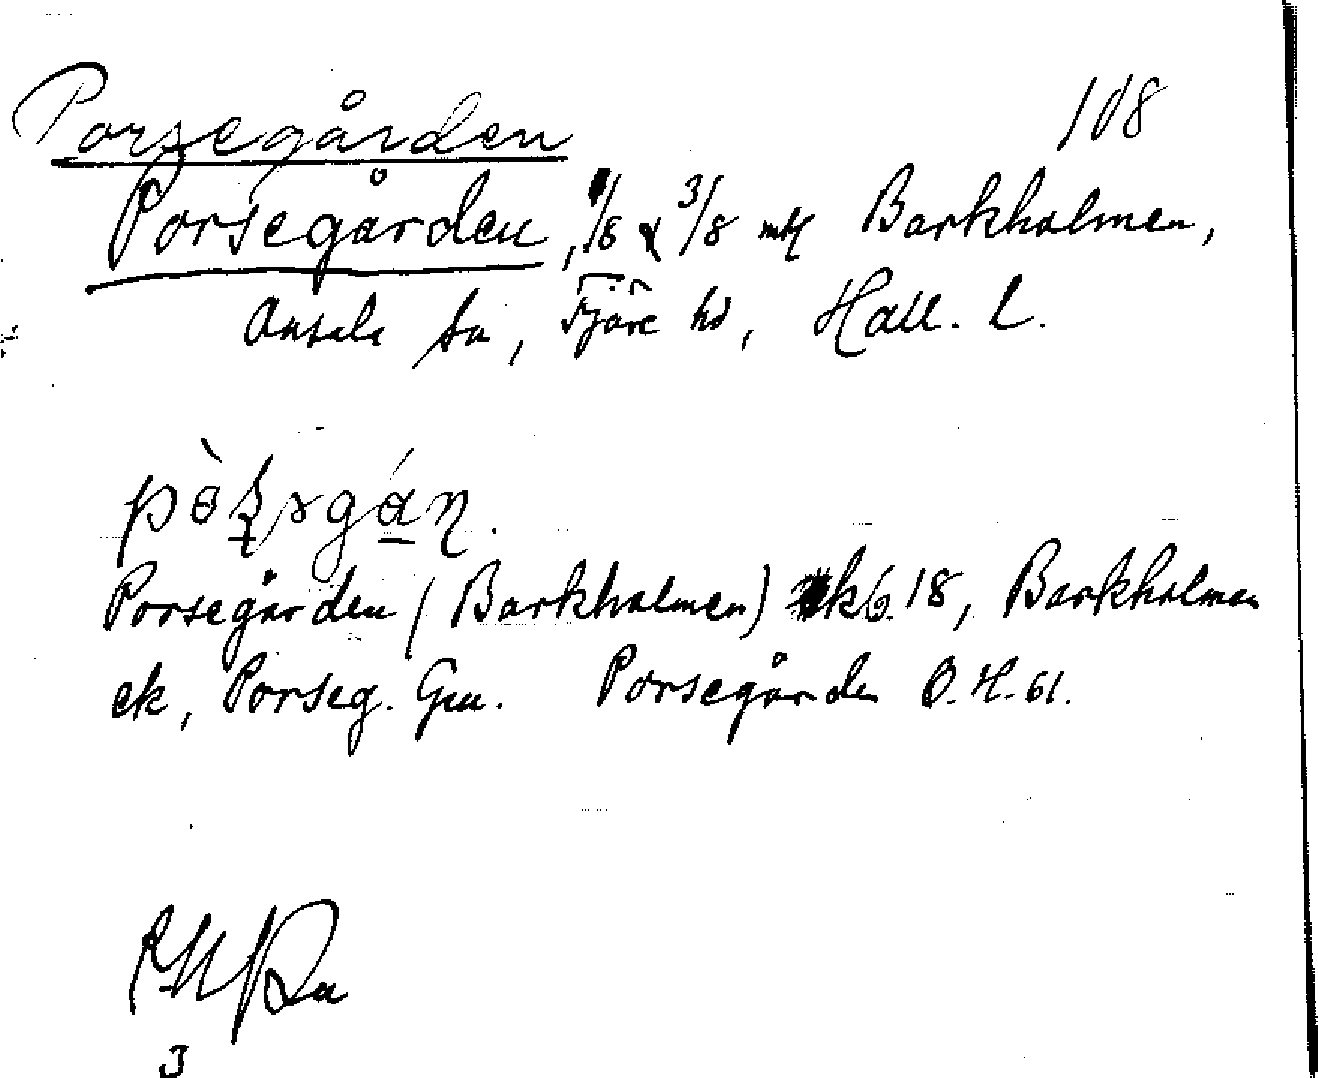 Porsegården 108
Porsegården, 1/8 & 3/8 mtl Barkholmen,
Onsala sn, Fjäre hd, Hall. l.
Porsegården (Barkholmen) 18, Barkholmen
ek, Porseg. Gen. Porsegården O.H. 61.
3